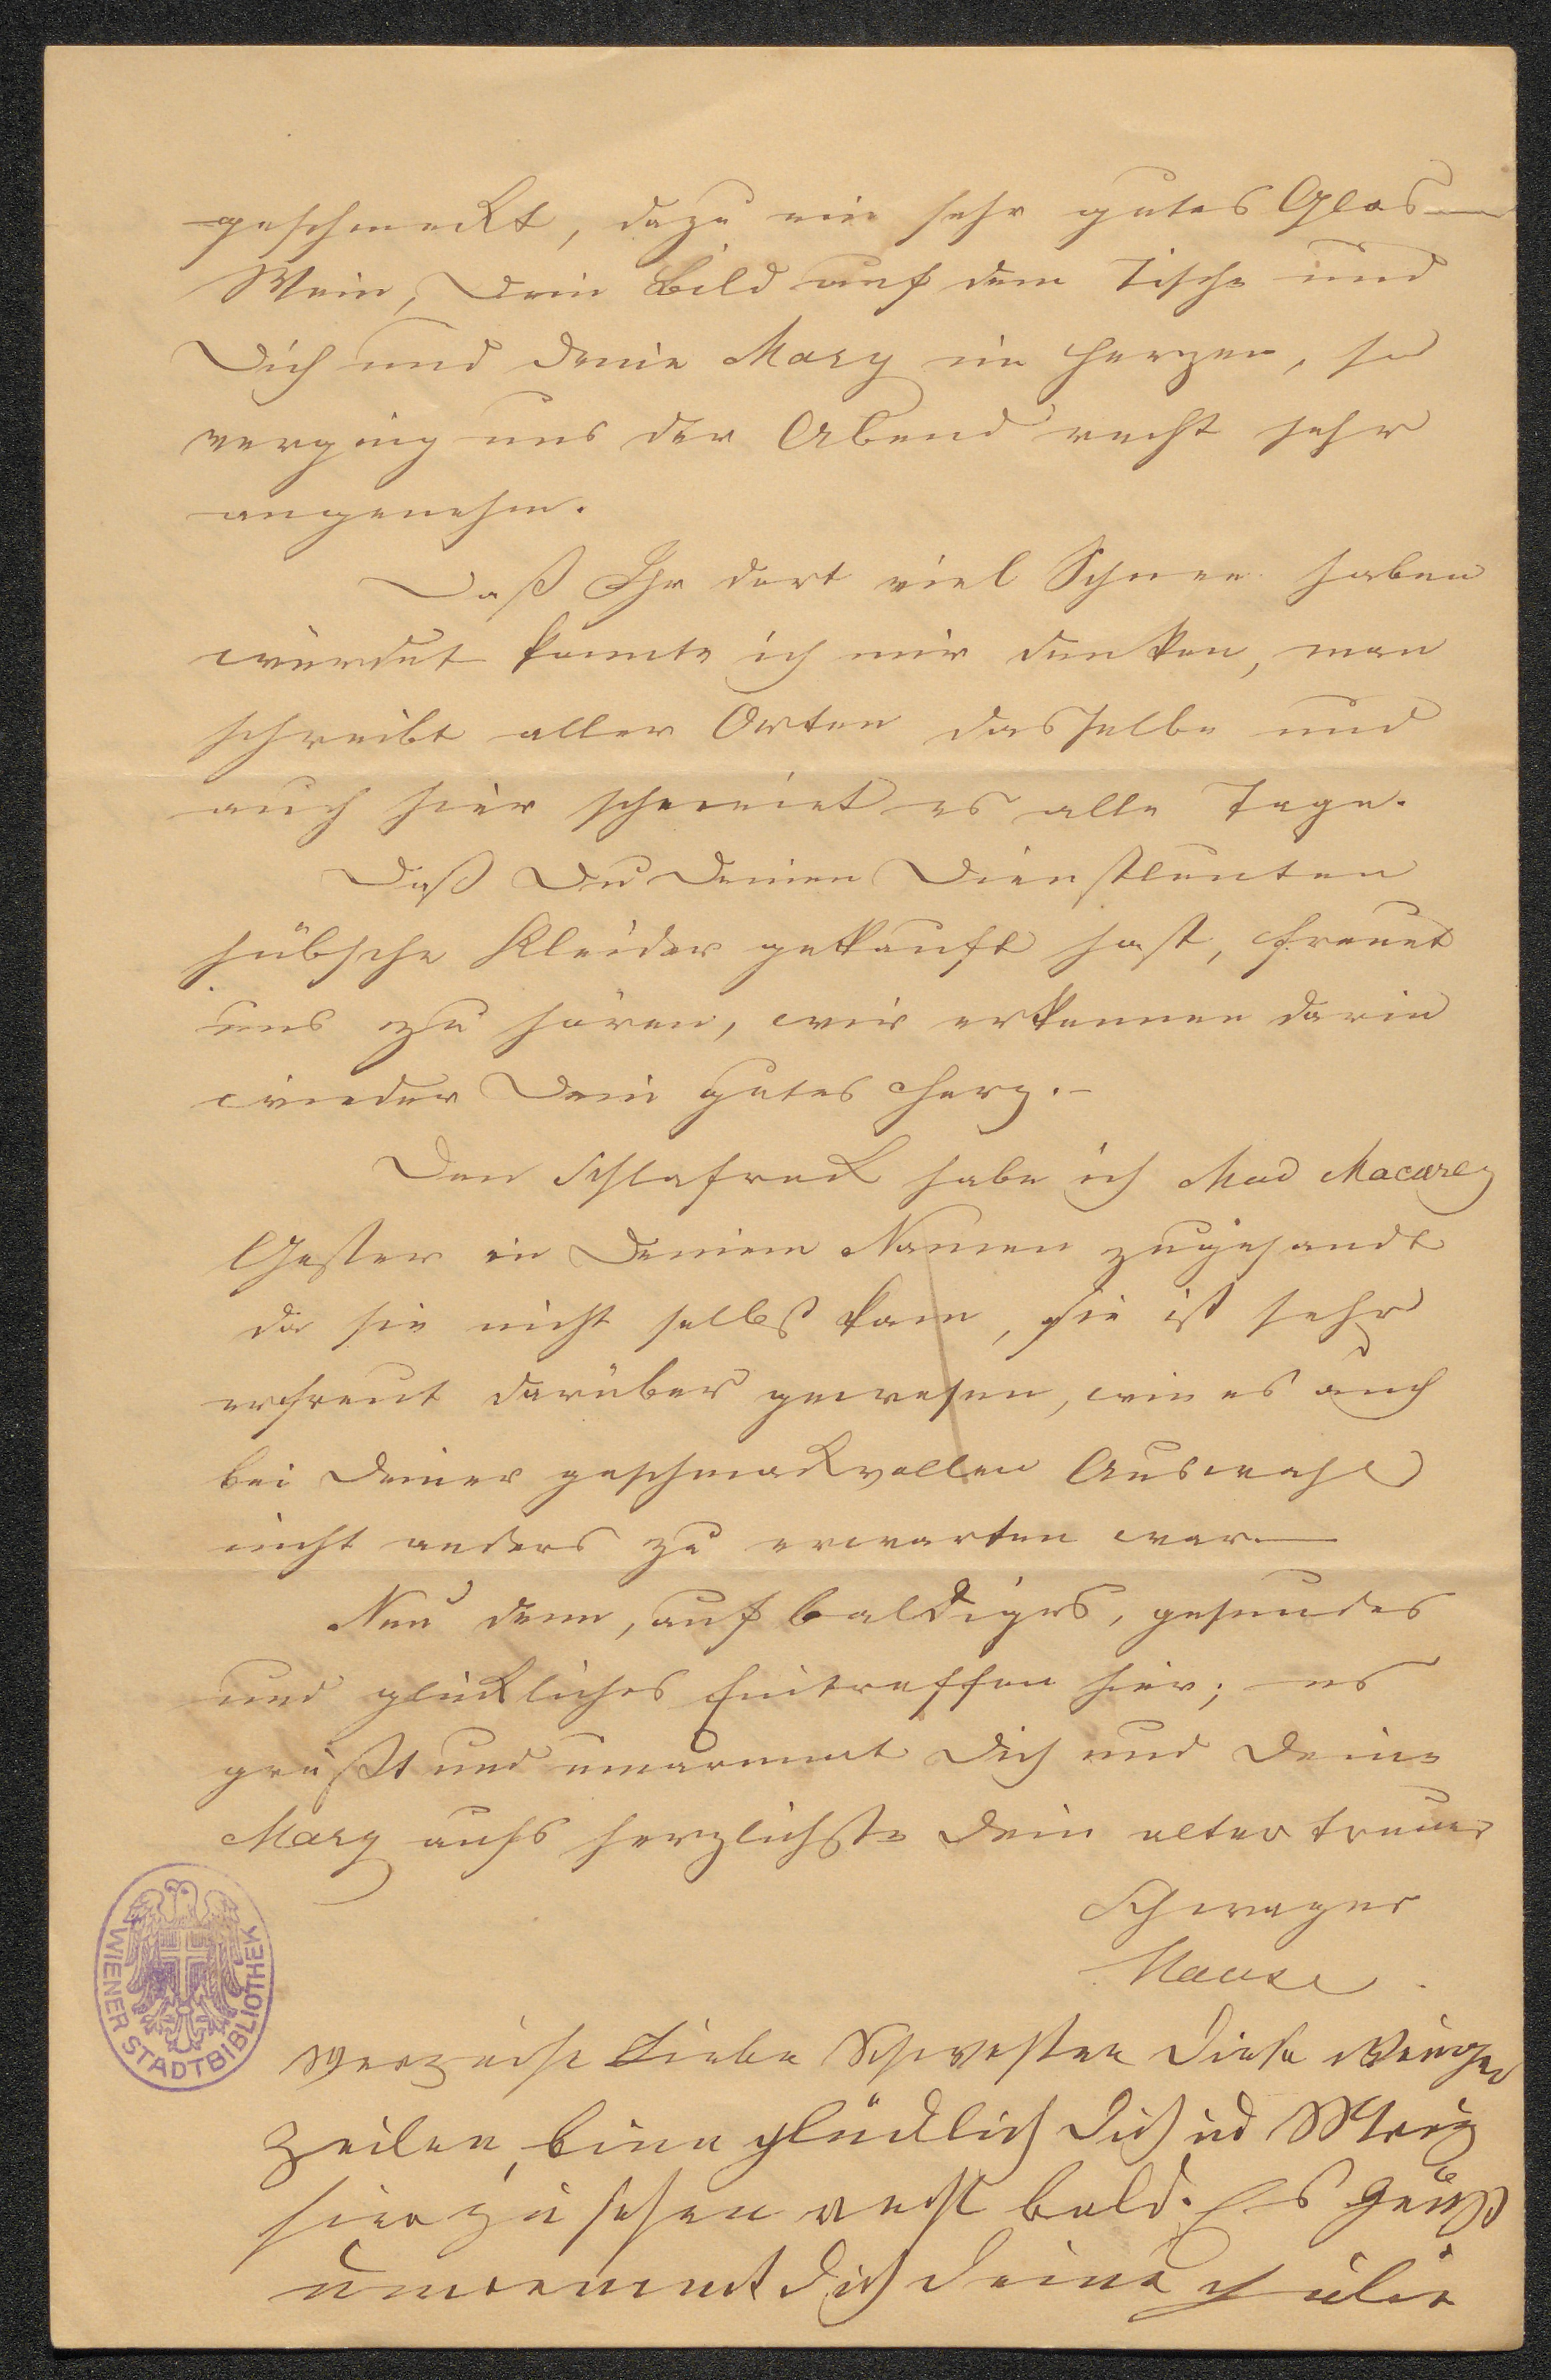 geschmeckt, dazu ein sehr gutes Glas
Wein, Dein Bild auf dem Tische und
Dich und Deine Mary im Herzen, so
verging uns der Abend recht sehr
angenehm.
Daß Ihr dort viel Schnee haben
würdet konnte ich mir denken, man
schreibt aller Orten dasselbe und
auch hier schneiet es alle Tage.
Daß Du Deinen Dienstleuten
hübsche Kleider gekauft hast, freuet
uns zu hören, wir erkennen darin
wieder Dein gutes Herz.-
Den Schlafrock habe ich Mad
Gester in Deinem Namen zugesandt
da sie nicht selbst kam, sie ist sehr
erfreut darüber gewesen, wie es auch
bei Deiner geschmackvollen Auswahl
nicht anders zu erwarten war
Nun denn, auf baldiges, gesundes
und glückliches Eintreffen hier; es
grüßt und umarmmt Dich und Deine
Mary aufs herzlichste Dein alter treuer
Schwager
WIENER STADTBIBLIOTHEK
Verzeihe Liebe Schwester diese
Zeilen, binn glücklich Dich ud
hier zu sehen recht bald. Es
umarmmt Dich Deine Julie